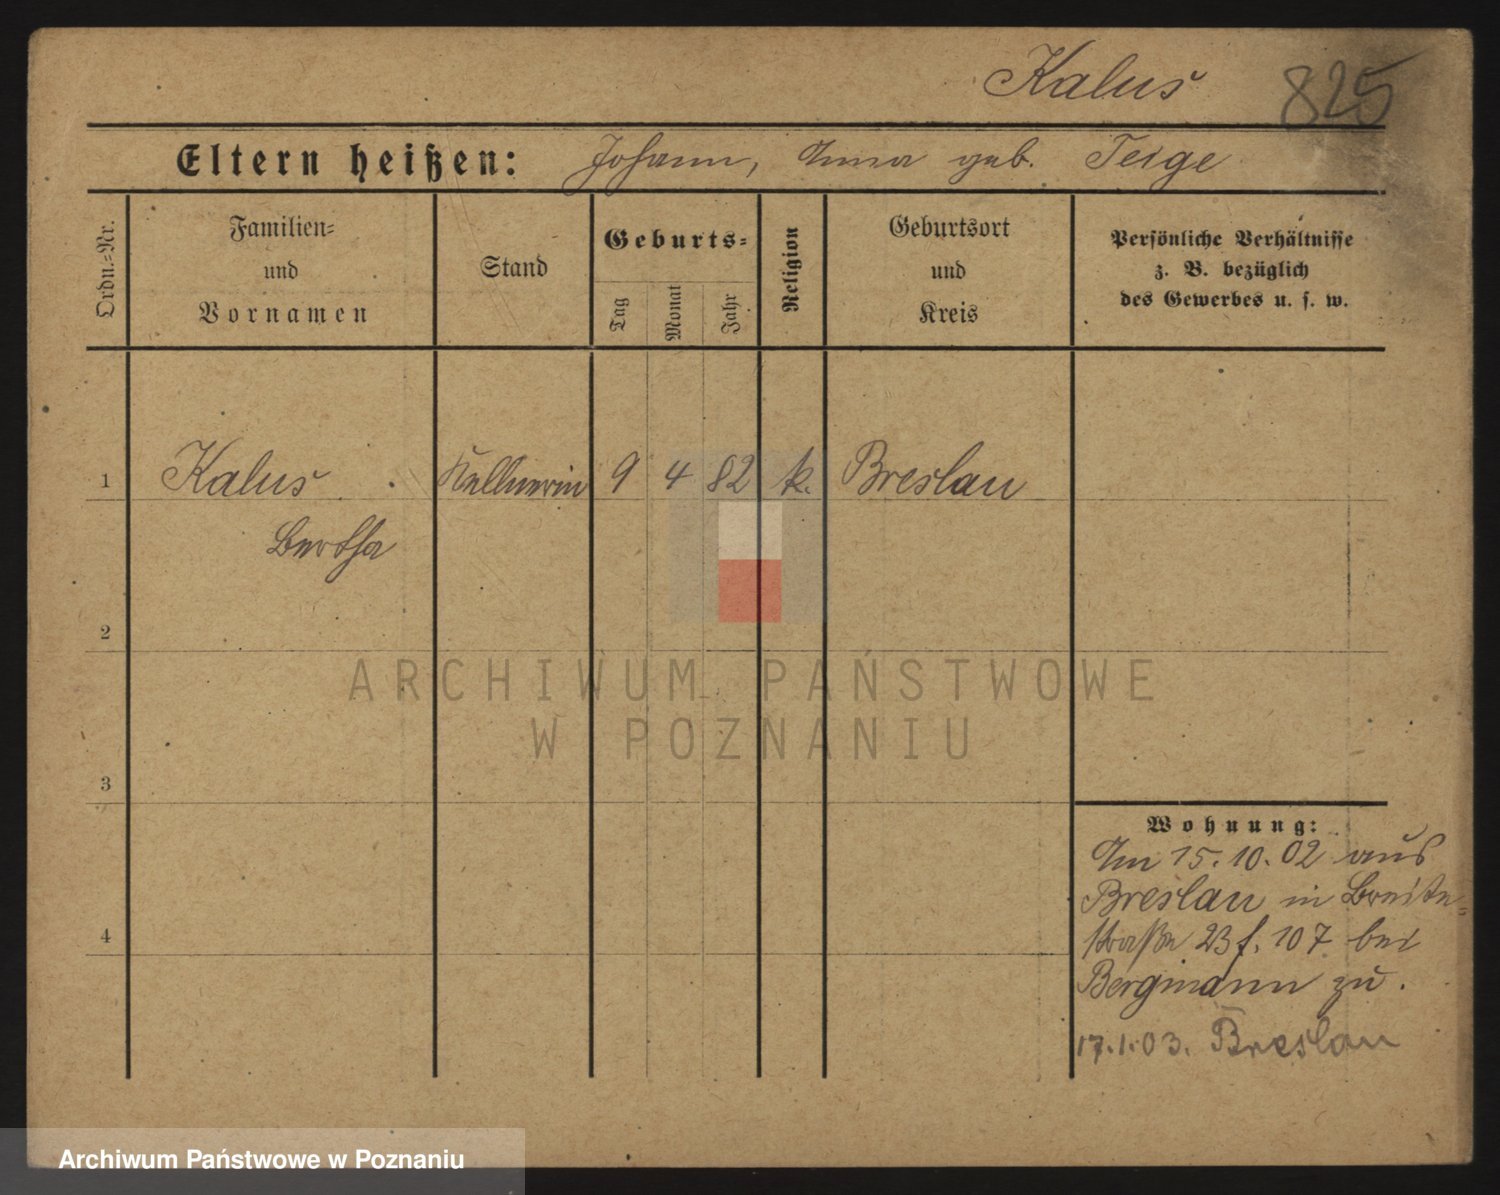 Kalus
825
Eltern heißen: Johann, Anna geb. Teige
Ordn.-Nr.
Familien-
und
Vornamen
Stand
Geburts-
Tag
Monat
Jahr
Religion
Geburtsort
und
Kreis
Persönliche Verhältnisse
z. B. bezüglich
des Gewerbes u. s. w.
1 Kalus Kellnerin 9 4 82 k. Breslau
Bertha
2
3
4
Wohnung:
Am 15.10.02 aus
Breslau in Breite-
straße 23 f. 107 bei
Bergmann zu.
17.1.03. Breslau
ARCHIWUM PAŃSTWOWE
W POZNANIU
Archiwum Państwowe w Poznaniu